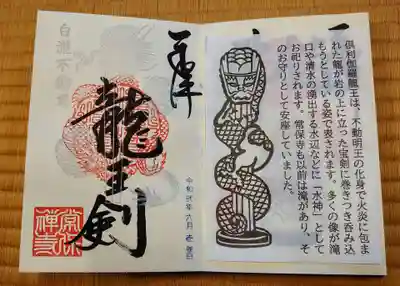 倶利伽羅龍王は、不動明王の化身で火炎に包ま
れた龍が岩の上に立った宝剣に巻きつき呑み込
もうとしている姿で表されます。多くの像が滝
口や清水の湧出する水辺などに「水神」として
お祀りされます。常保寺も以前は滝があり、そ
のお守りとして安座していました。
奉拝
龍王剣
白瀧不動尊
令和弐年六月壱日
常保禅寺